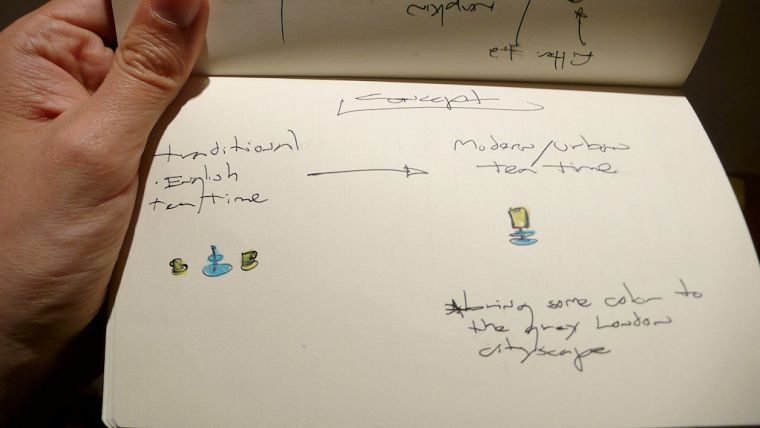 Concept
traditional
. English
tea/time
Modern/urban
tea time
bring some color to
the grey London
cityscape